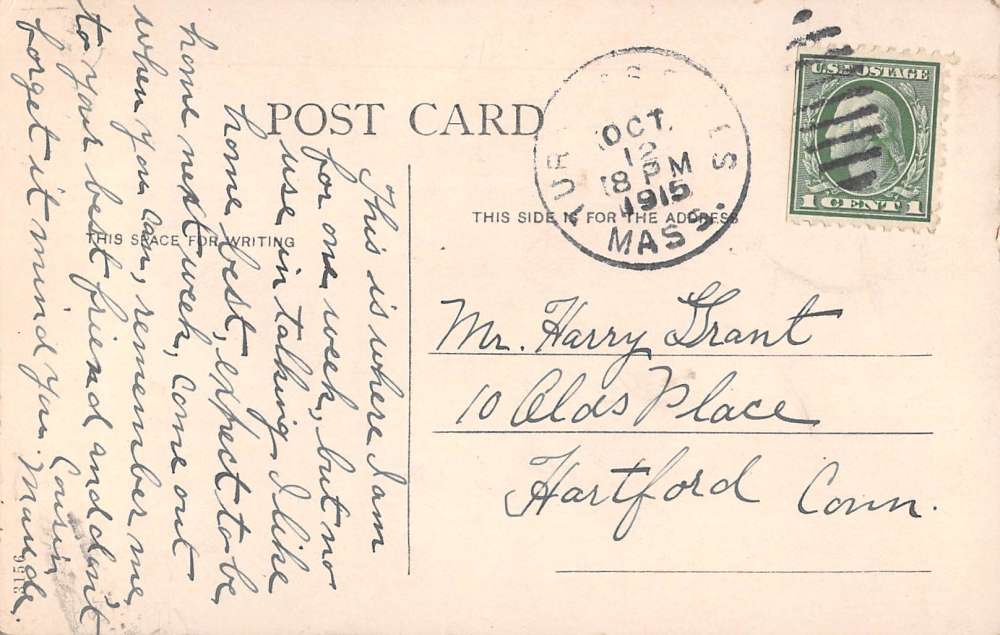 POST CARD
THIS SPACE FOR WRITING
THIS SIDE IS FOR THE ADDRESS
OCT.
12
8 PM
1915
MASS.
U.S. POSTAGE
1 CENT 1
This is where I am
for one week, but no
use in talking I like
home best, expect to be
home next week, Come out
when you can, remember me
to your best friend and don't
forget it mind you. Cousin
Maude.
Mr. Harry Grant
10 Olds Place
Hartford Conn.